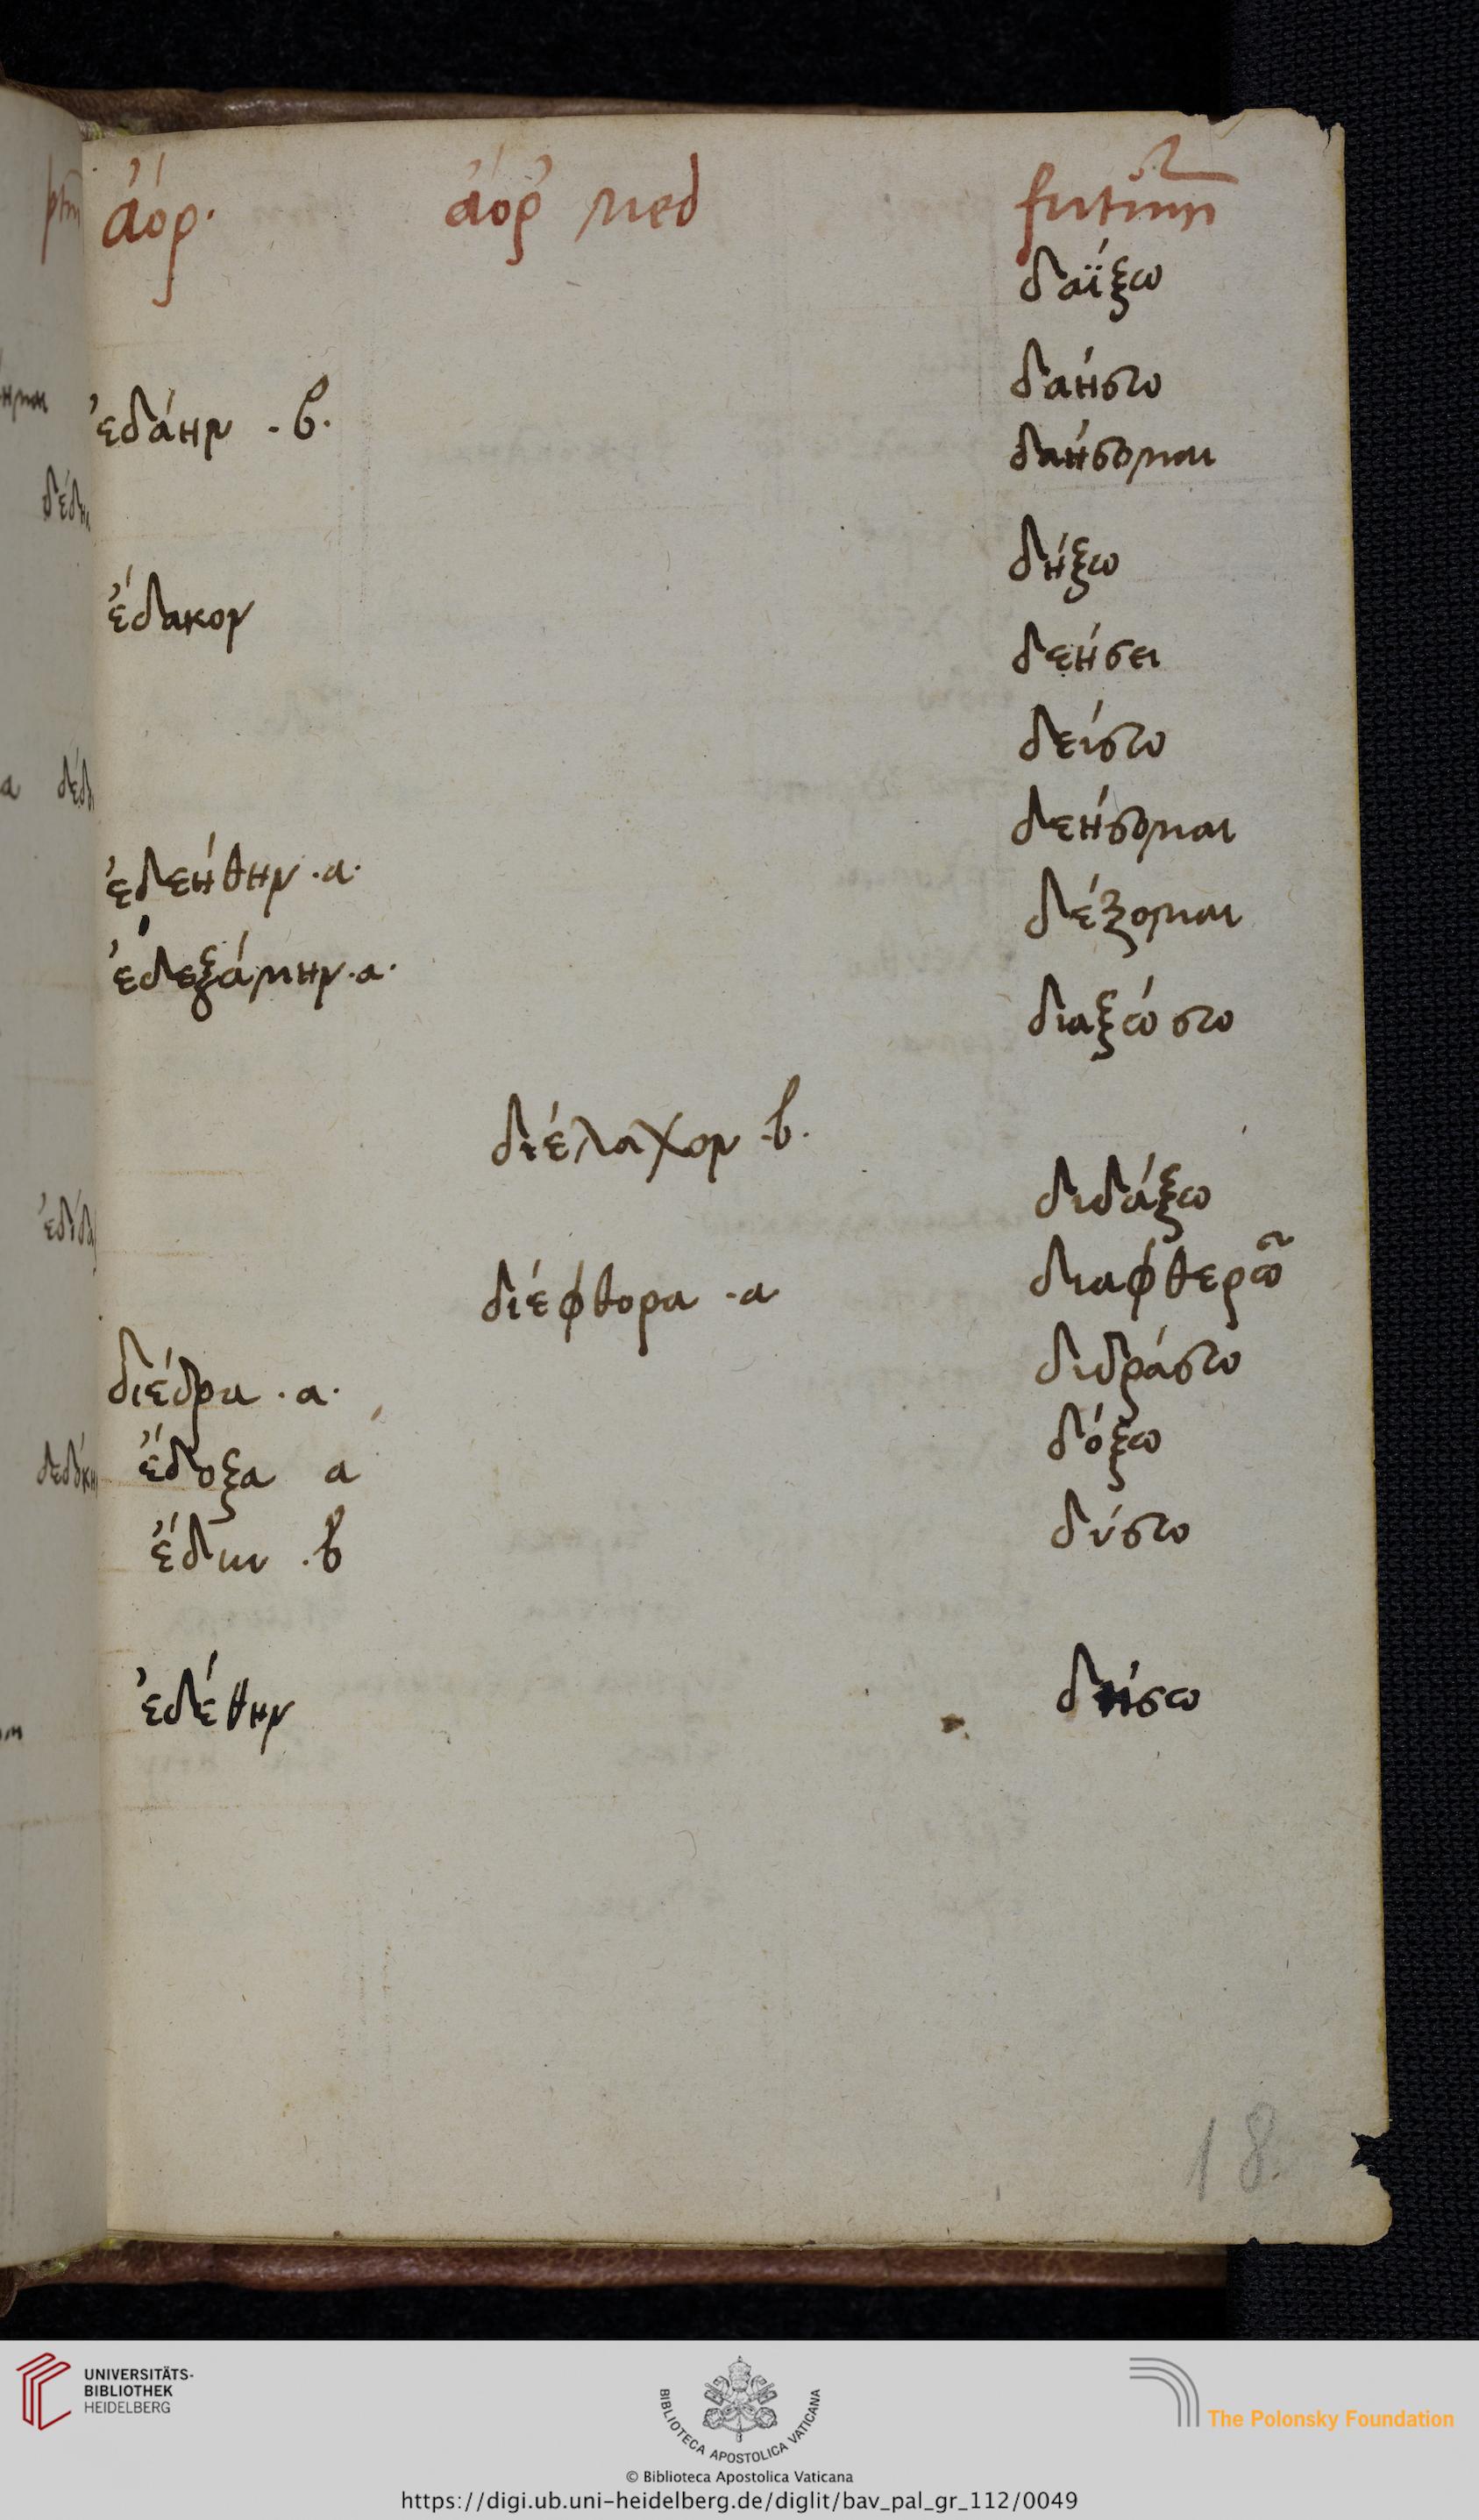 ἀόρ· ἀόρ med futurum
δαΐξω
δαήσω
ἐδάην · β·
δαήσομαι
δήξω
ἔδακον
δεήσει
δείσω
δεήσομαι
ἐδεήθην · α·
δέξομαι
ἐδεξάμην · α·
διαξώσω
διέλαχον · β·
διδάξω
διαφθερῶ
διέφθορα · α
διδράσω
διέδρα · α·
δόξω
ἔδοξα α
δύσω
ἔδυν · β
ἐδέθην
18
UNIVERSITÄTS-
BIBLIOTHEK
HEIDELBERG
BIBLIOTECA APOSTOLICA VATICANA
The Polonsky Foundation
© Biblioteca Apostolica Vaticana
https://digi.ub.uni-heidelberg.de/diglit/bav_pal_gr_112/0049